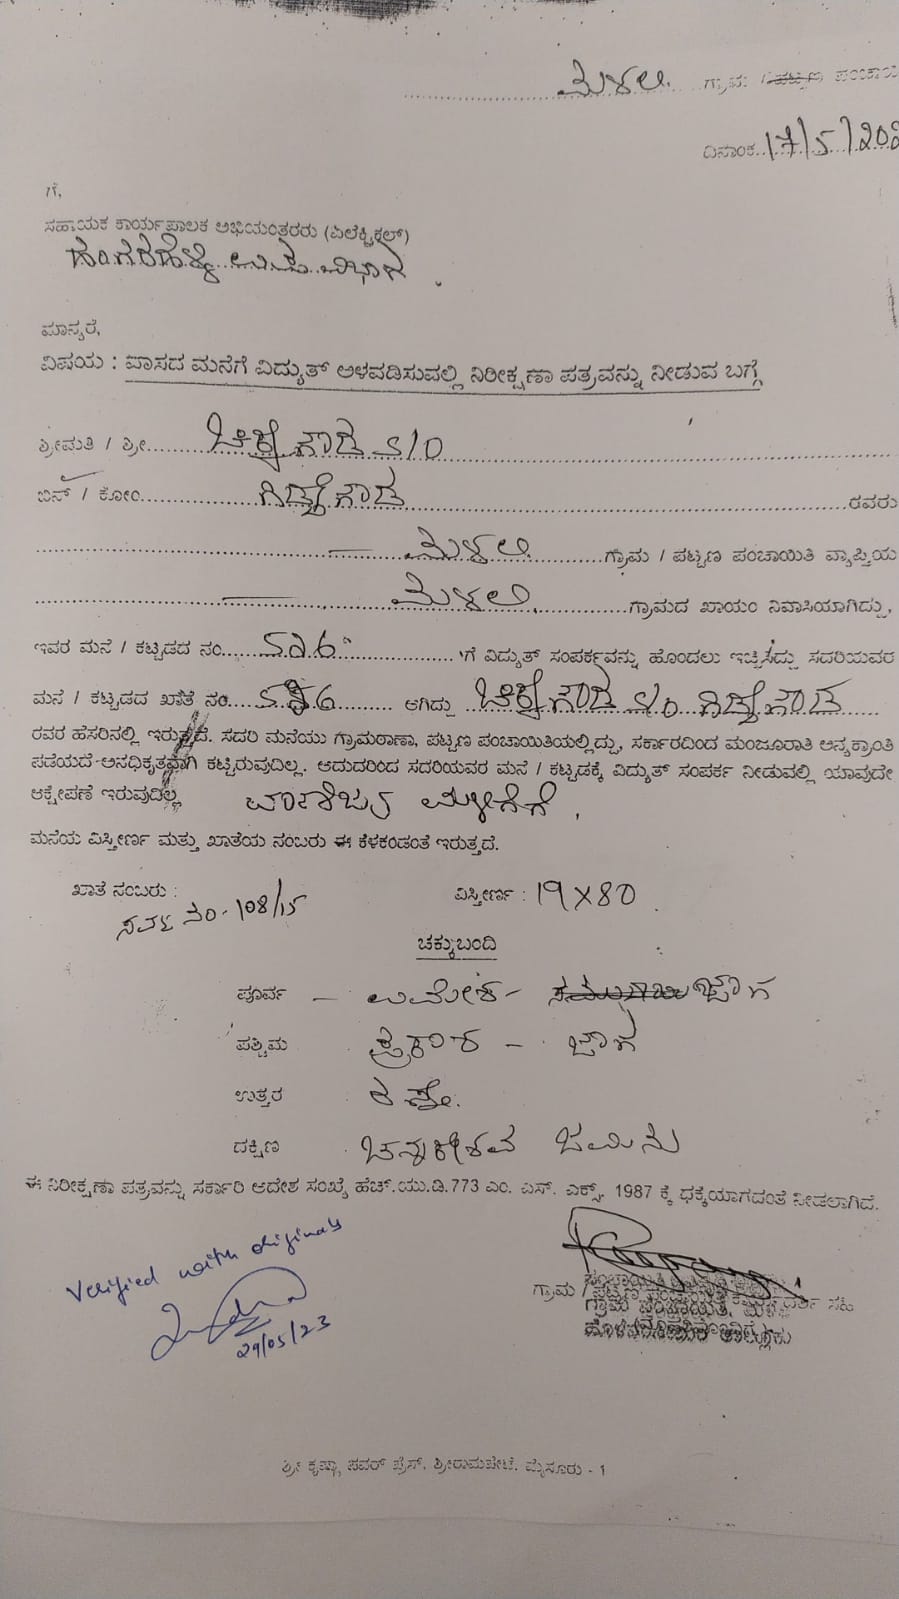 ಮೆಳಲಿ ಗ್ರಾಮ / ಪಟ್ಟಣ ಪಂಚಾಯ
ದಿನಾಂಕ 17/5/202
ಗೆ,
ಸಹಾಯಕ ಕಾರ್ಯಪಾಲಕ ಅಭಿಯಂತರರು (ಎಲೆಕ್ಟ್ರಿಕಲ್)
ಉಪ ವಿಭಾಗ
ಮಾನ್ಯರೆ,
ವಿಷಯ : ವಾಸದ ಮನೆಗೆ ವಿದ್ಯುತ್ ಅಳವಡಿಸುವಲ್ಲಿ ನಿರೀಕ್ಷಣಾ ಪತ್ರವನ್ನು ನೀಡುವ ಬಗ್ಗೆ
ಶ್ರೀಮತಿ / ಶ್ರೀ ಚಿಕ್ಕೇಗೌಡ S/O
ಬಿನ್ / ಕೋಂ ಗಿಡ್ಡೇಗೌಡ ರವರು
ಮೆಳಲಿ ಗ್ರಾಮ / ಪಟ್ಟಣ ಪಂಚಾಯಿತಿ ವ್ಯಾಪ್ತಿಯ
ಮೆಳಲಿ ಗ್ರಾಮದ ಖಾಯಂ ನಿವಾಸಿಯಾಗಿದ್ದು,
ಇವರ ಮನೆ / ಕಟ್ಟಡದ ನಂ 'ಗೆ ವಿದ್ಯುತ್ ಸಂಪರ್ಕವನ್ನು ಹೊಂದಲು ಇಚ್ಛಿಸಿದ್ದು ಸದರಿಯವರ
ಮನೆ / ಕಟ್ಟಡದ ಖಾತೆ ನಂ ಆಗಿದ್ದು ಚಿಕ್ಕೇಗೌಡ S/O ಗಿಡ್ಡೇಗೌಡ
ರವರ ಹೆಸರಿನಲ್ಲಿ ಇರುತ್ತದೆ. ಸದರಿ ಮನೆಯು ಗ್ರಾಮಠಾಣಾ, ಪಟ್ಟಣ ಪಂಚಾಯಿತಿಯಲ್ಲಿದ್ದು, ಸರ್ಕಾರದಿಂದ ಮಂಜೂರಾತಿ ಅನ್ಯಕ್ರಾಂತಿ
ಪಡೆಯದೆ ಅನಧಿಕೃತವಾಗಿ ಕಟ್ಟಿರುವುದಿಲ್ಲ. ಆದುದರಿಂದ ಸದರಿಯವರ ಮನೆ / ಕಟ್ಟಡಕ್ಕೆ ವಿದ್ಯುತ್ ಸಂಪರ್ಕ ನೀಡುವಲ್ಲಿ ಯಾವುದೇ
ಆಕ್ಷೇಪಣೆ ಇರುವುದಿಲ್ಲ ವಾಣಿಜ್ಯ ಮಳಿಗೆಗೆ
ಮನೆಯ ವಿಸ್ತೀರ್ಣ ಮತ್ತು ಖಾತೆಯ ನಂಬರು ಈ ಕೆಳಕಂಡಂತೆ ಇರುತ್ತದೆ.
ಖಾತೆ ನಂಬರು : ವಿಸ್ತೀರ್ಣ : 19X80
ಸರ್ವೆ ನಂ-108/15
ಚಕ್ಕುಬಂದಿ
ಪೂರ್ವ - ಉಮೇಶ - ಜಾಗ
ಪಶ್ಚಿಮ ಪ್ರಕಾಶ - ಜಾಗ
ಉತ್ತರ ರಸ್ತೆ.
ದಕ್ಷಿಣ ಚನ್ನಕೇಶವ ಜಮೀನು
ಈ ನಿರೀಕ್ಷಣಾ ಪತ್ರವನ್ನು ಸರ್ಕಾರಿ ಆದೇಶ ಸಂಖ್ಯೆ ಹೆಚ್.ಯು.ಡಿ.773 ಎಂ. ಎಸ್. ಎಕ್ಸ್. 1987 ಕ್ಕೆ ಧಕ್ಕೆಯಾಗದಂತೆ ನೀಡಲಾಗಿದೆ.
Verified with originals
29/05/23
ಗ್ರಾಮ / ಪಟ್ಟಣ ಪಂಚಾಯಿತಿ
ಗ್ರಾಮ ಪಂಚಾಯಿತಿ,
ಶ್ರೀ ಕೃಷ್ಣಾ ಪವರ್ ಪ್ರೆಸ್, ಶ್ರೀರಾಮಪೇಟೆ, ಮೈಸೂರು - 1